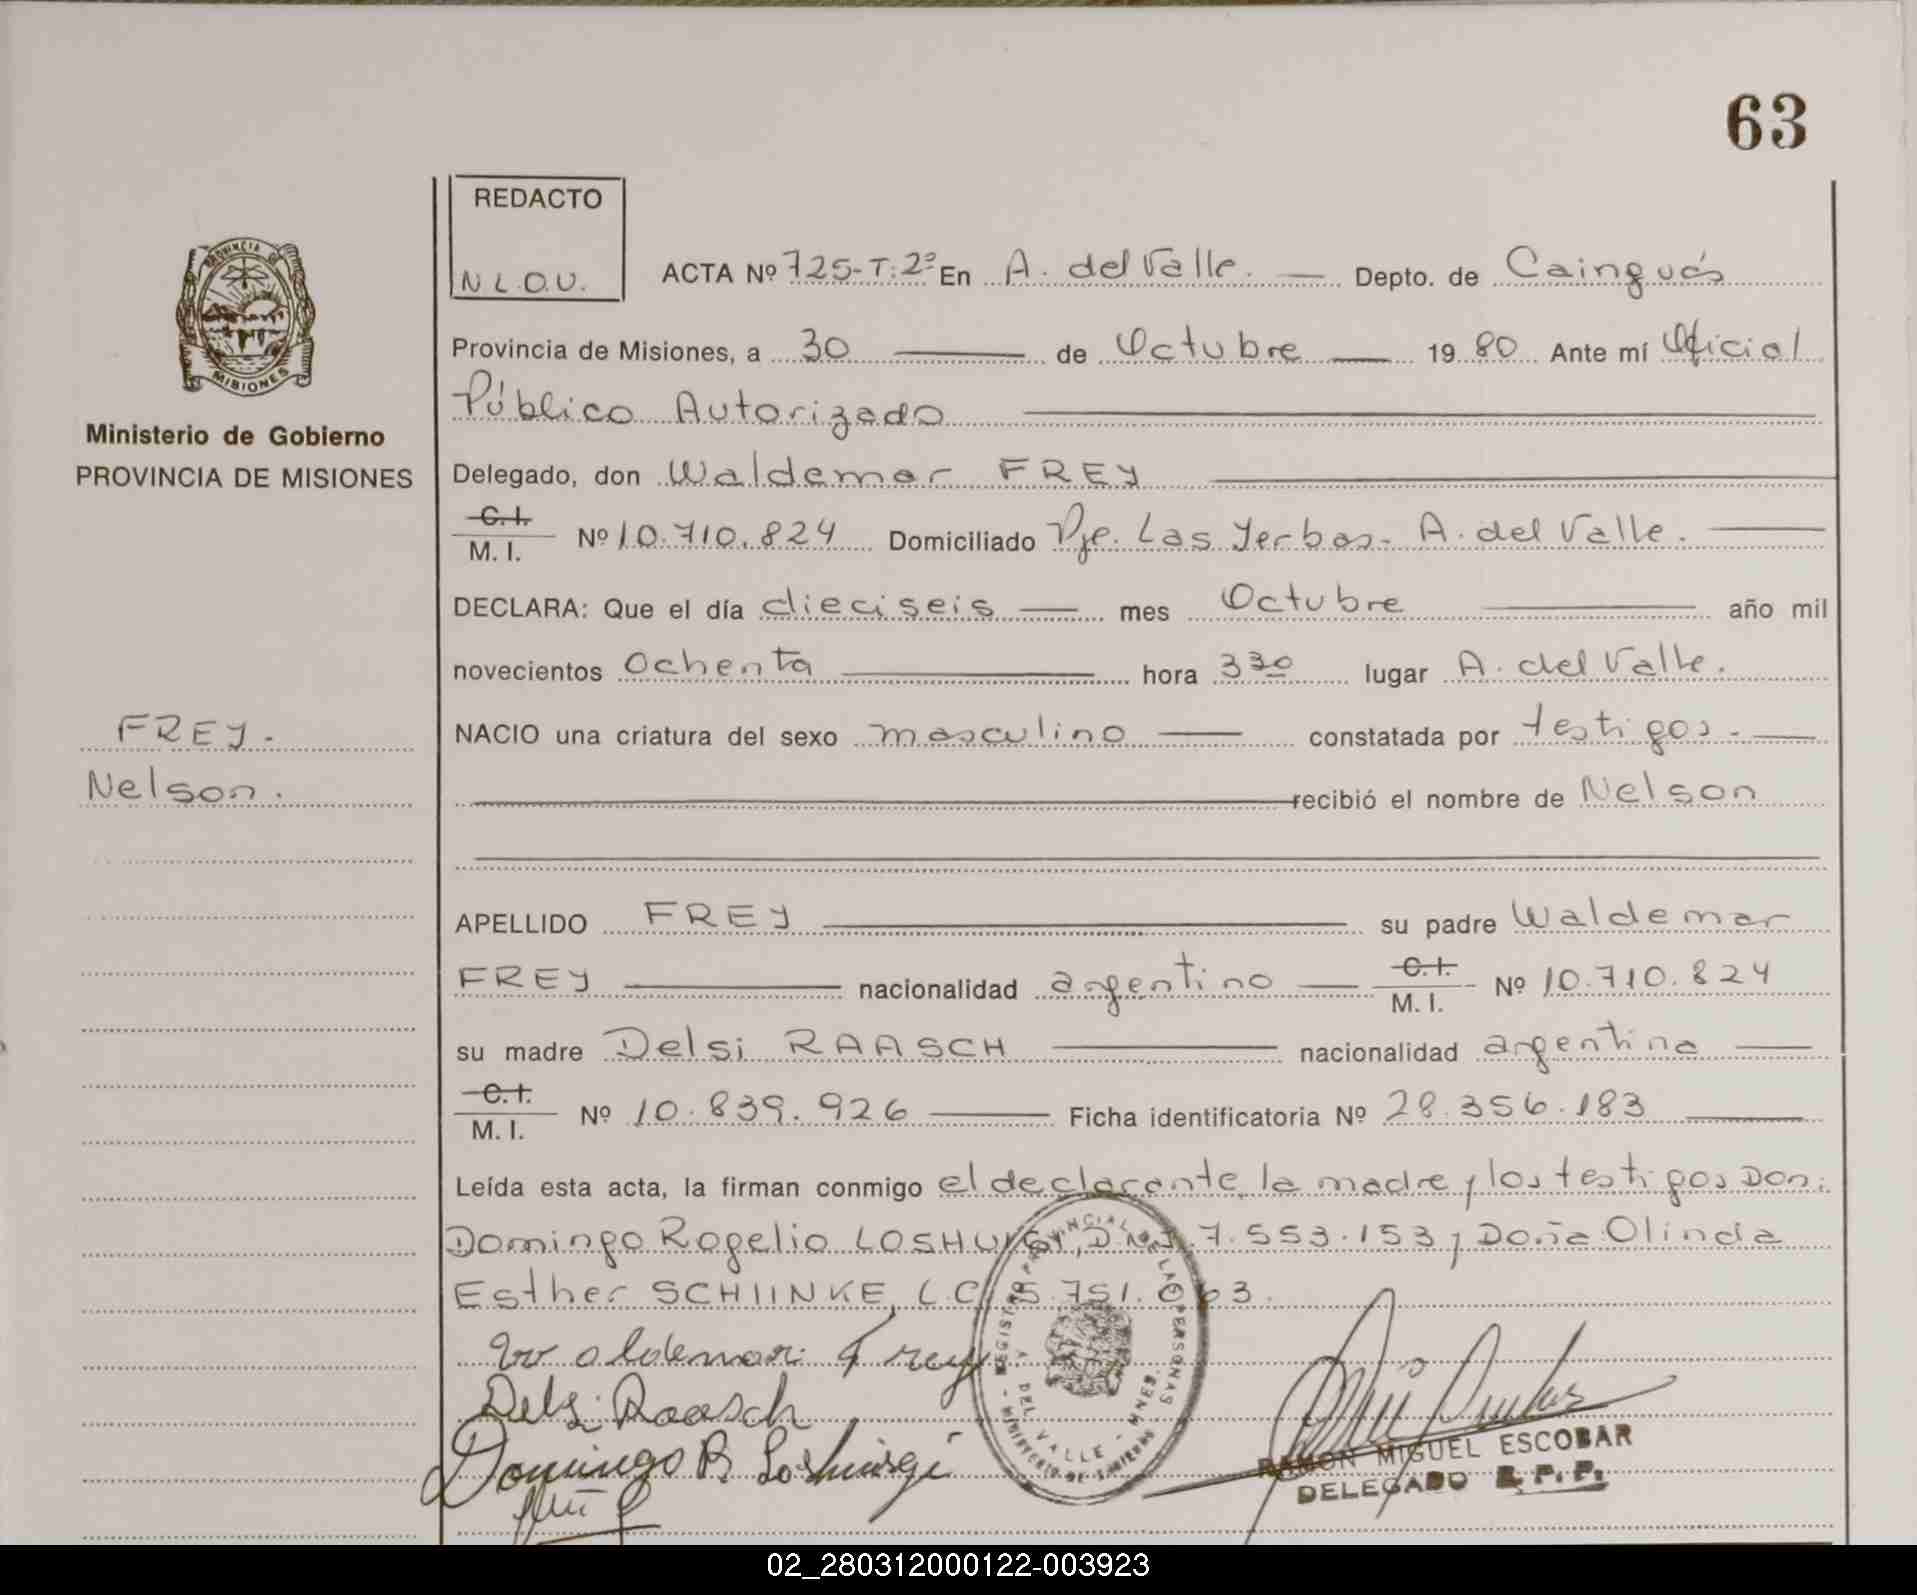 63
REDACTO
N L.O.U.
ACTA Nº 725-T:2º En A. del Valle. Depto. de Cainguás
Provincia de Misiones, a 30 de Octubre 19 80 Ante mí Oficial
Público Autorizado
PROVINCIA DE
MISIONES
Ministerio de Gobierno
PROVINCIA DE MISIONES
Delegado, don Waldemar FREY
C.I.
M. I. Nº 10.710.824 Domiciliado Pje. Las Yerbas- A. del Valle.
DECLARA: Que el día dieciseis mes Octubre año mil
novecientos Ochenta hora 3 30 lugar A. del Valle.
FREY.
Nelson.
NACIO una criatura del sexo masculino constatada por testigos.-
recibió el nombre de Nelson
APELLIDO FREY su padre Waldemar
FREY nacionalidad argentino C.I. M. I. Nº 10.710.824
su madre Delsi RAASCH nacionalidad argentina
C.I.
M. I. Nº 10.839.926 Ficha identificatoria Nº 28.356.183
Leída esta acta, la firman conmigo el declarante, la madre y los testigos Don:
Domingo Rogelio 7.553.153 y Doña Olinda
Esther SCHIINKE, L.C. 5.751.063.
Waldemar Frey
Delsi Raasch
Domingo R.
REGISTRO PROVINCIAL DE LAS PERSONAS
DEL VALLE - MNES.
MINISTERIO DE GOBIERNO
RAMON MIGUEL ESCOBAR
DELEGADO R. P. P.
02_280312000122-003923